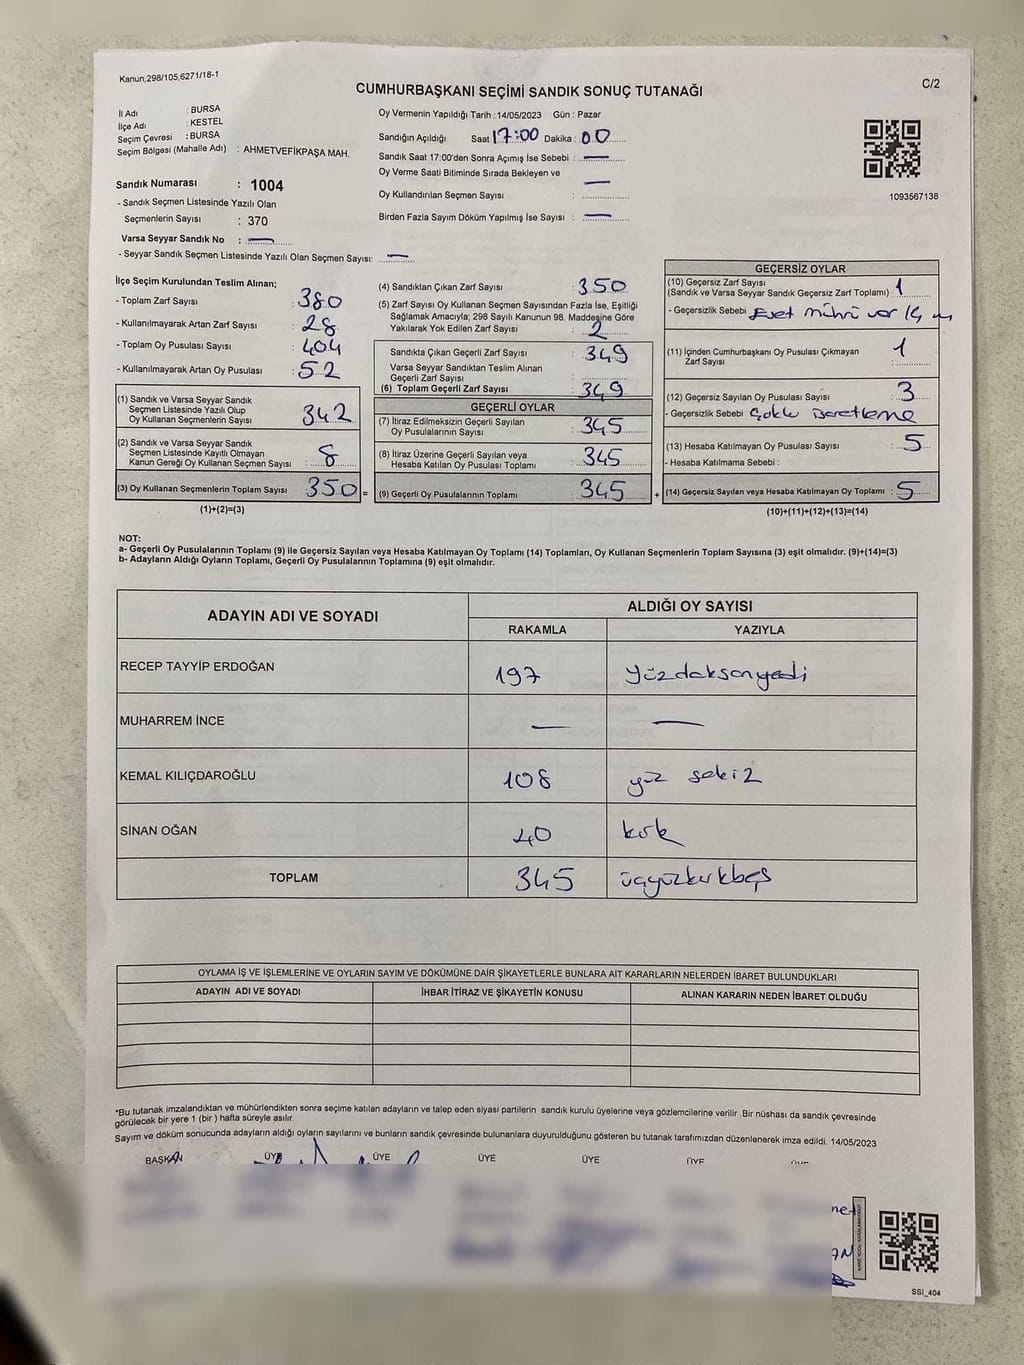 Kanun,298/105,6271/18-1
C/2
CUMHURBAŞKANI SEÇİMİ SANDIK SONUÇ TUTANAĞI
İl Adı : BURSA
İlçe Adı : KESTEL
Seçim Çevresi : BURSA
Seçim Bölgesi (Mahalle Adı) : AHMETVEFİKPAŞA MAH.
Sandık Numarası : 1004
- Sandık Seçmen Listesinde Yazılı Olan
Seçmenlerin Sayısı : 370
Varsa Seyyar Sandık No : —
- Seyyar Sandık Seçmen Listesinde Yazılı Olan Seçmen Sayısı: —
Oy Vermenin Yapıldığı Tarih : 14/05/2023 Gün : Pazar
Sandığın Açıldığı Saat 17:00 Dakika : 00
Sandık Saat 17:00'den Sonra Açımış İse Sebebi : —
Oy Verme Saati Bitiminde Sırada Bekleyen ve —
Oy Kullandırılan Seçmen Sayısı :
Birden Fazla Sayım Döküm Yapılmış İse Sayısı : —
1093567138
İlçe Seçim Kurulundan Teslim Alınan;
- Toplam Zarf Sayısı : 380
- Kullanılmayarak Artan Zarf Sayısı : 28
- Toplam Oy Pusulası Sayısı : 404
- Kullanılmayarak Artan Oy Pusulası : 52
(1) Sandık ve Varsa Seyyar Sandık
Seçmen Listesinde Yazılı Olup
Oy Kullanan Seçmenlerin Sayısı : 342
(2) Sandık ve Varsa Seyyar Sandık
Seçmen Listesinde Kayıtlı Olmayan
Kanun Gereği Oy Kullanan Seçmen Sayısı : 8
(3) Oy Kullanan Seçmenlerin Toplam Sayısı : 350 =
(1)+(2)=(3)
(4) Sandıktan Çıkan Zarf Sayısı : 350
(5) Zarf Sayısı Oy Kullanan Seçmen Sayısından Fazla İse, Eşitliği
Sağlamak Amacıyla; 298 Sayılı Kanunun 98. Maddesine Göre
Yakılarak Yok Edilen Zarf Sayısı : 2
Sandıkta Çıkan Geçerli Zarf Sayısı : 349
Varsa Seyyar Sandıktan Teslim Alınan
Geçerli Zarf Sayısı :
(6) Toplam Geçerli Zarf Sayısı : 349
GEÇERLİ OYLAR
(7) İtiraz Edilmeksizin Geçerli Sayılan
Oy Pusulalarının Sayısı : 345
(8) İtiraz Üzerine Geçerli Sayılan veya
Hesaba Katılan Oy Pusulası Toplamı : 345
(9) Geçerli Oy Pusulalarının Toplamı : 345 +
GEÇERSİZ OYLAR
(10) Geçersiz Zarf Sayısı
(Sandık ve Varsa Seyyar Sandık Geçersiz Zarf Toplamı) : 1
- Geçersizlik Sebebi : Evet mührü var
(11) İçinden Cumhurbaşkanı Oy Pusulası Çıkmayan
Zarf Sayısı : 1
(12) Geçersiz Sayılan Oy Pusulası Sayısı : 3
- Geçersizlik Sebebi : Çoklu işaretleme
(13) Hesaba Katılmayan Oy Pusulası Sayısı : 5
- Hesaba Katılmama Sebebi :
(14) Geçersiz Sayılan veya Hesaba Katılmayan Oy Toplamı : 5
(10)+(11)+(12)+(13)=(14)
NOT:
a- Geçerli Oy Pusulalarının Toplamı (9) ile Geçersiz Sayılan veya Hesaba Katılmayan Oy Toplamı (14) Toplamları, Oy Kullanan Seçmenlerin Toplam Sayısına (3) eşit olmalıdır. (9)+(14)=(3)
b- Adayların Aldığı Oyların Toplamı, Geçerli Oy Pusulalarının Toplamına (9) eşit olmalıdır.
ADAYIN ADI VE SOYADI
ALDIĞI OY SAYISI
RAKAMLA YAZIYLA
RECEP TAYYİP ERDOĞAN 197 yüzdoksanyedi
MUHARREM İNCE — —
KEMAL KILIÇDAROĞLU 108 yüz sekiz
SİNAN OĞAN 40 kırk
TOPLAM 345 üçyüzkırkbeş
OYLAMA İŞ VE İŞLEMLERİNE VE OYLARIN SAYIM VE DÖKÜMÜNE DAİR ŞİKAYETLERLE BUNLARA AİT KARARLARIN NELERDEN İBARET BULUNDUKLARI
ADAYIN ADI VE SOYADI İHBAR İTİRAZ VE ŞİKAYETİN KONUSU ALINAN KARARIN NEDEN İBARET OLDUĞU
*Bu tutanak imzalandıktan ve mühürlendikten sonra seçime katılan adayların ve talep eden siyasi partilerin sandık kurulu üyelerine veya gözlemcilerine verilir .Bir nüshası da sandık çevresinde
görülecek bir yere 1 (bir ) hafta süreyle asılır.
Sayım ve döküm sonucunda adayların aldığı oyların sayılarını ve bunların sandık çevresinde bulunanlara duyurulduğunu gösteren bu tutanak tarafımızdan düzenlenerek imza edildi. 14/05/2023
BAŞKAN ÜYE ÜYE ÜYE ÜYE ÜYE ÜYE
KARE KODU KARALAMAYINIZ!
SSI_404